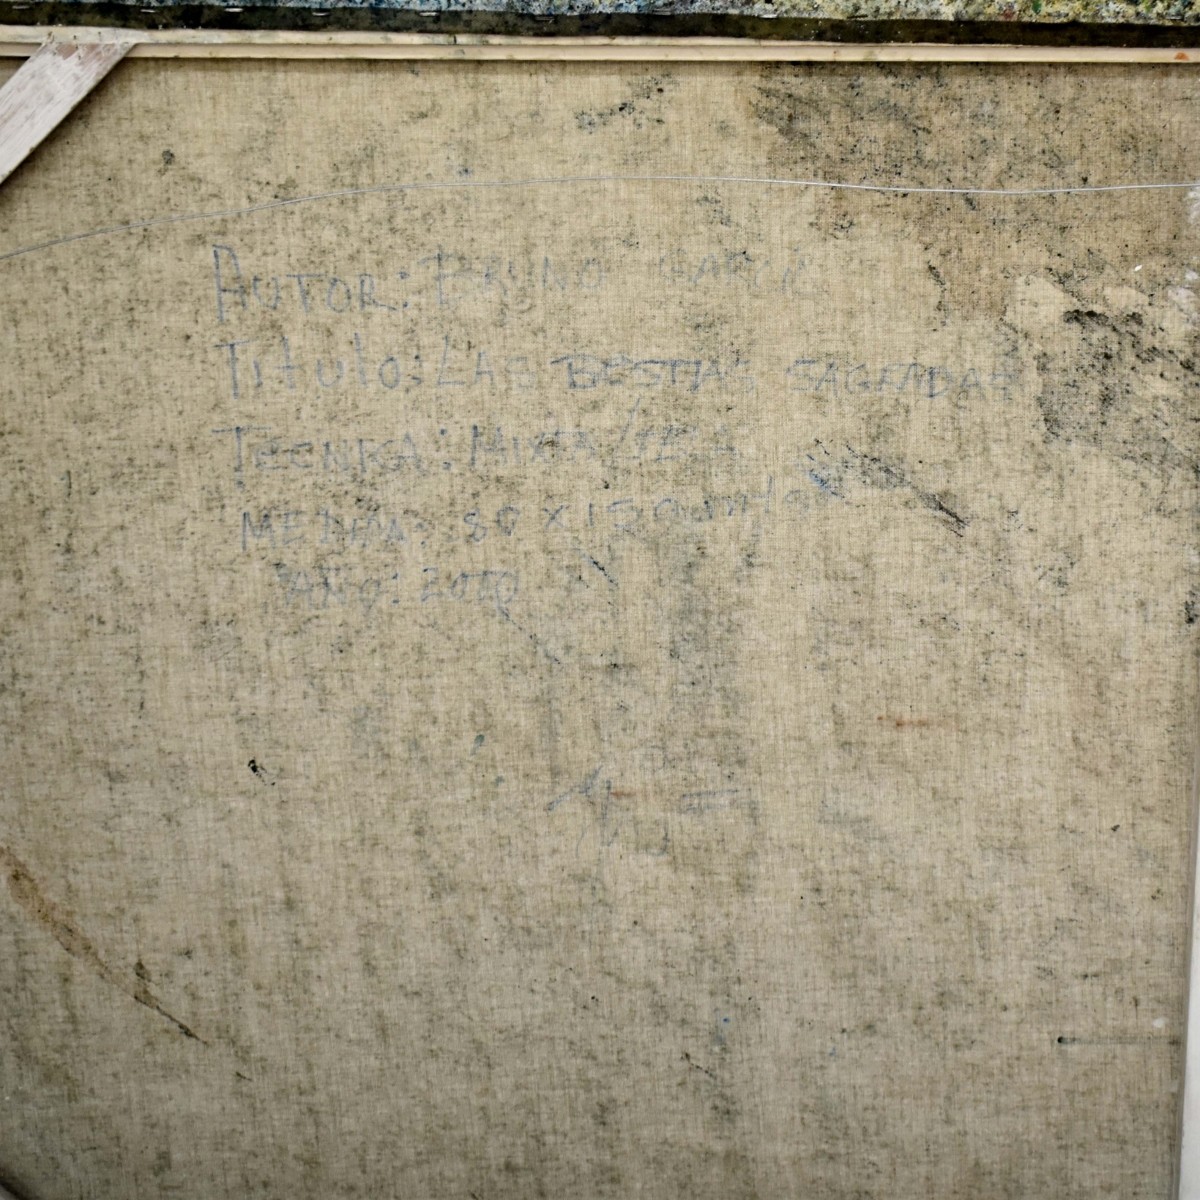 AUTOR: BRUNO
Titulo: LAS BESTIAS SAGRADAS
TECNICA: MIXTA/TELA
MEDIDA: 80 X 120
AÑO: 2010